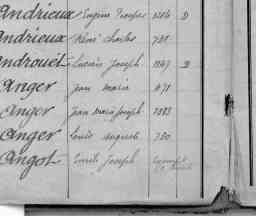 Andrieux Eugène D
Andrieux René Charles 781
Androuet Lucien Joseph 1147 D
Anger Jean Marie 1171
Anger Jean Marie Joseph 1083
Anger Louis Auguste 780
Angot Emile Joseph